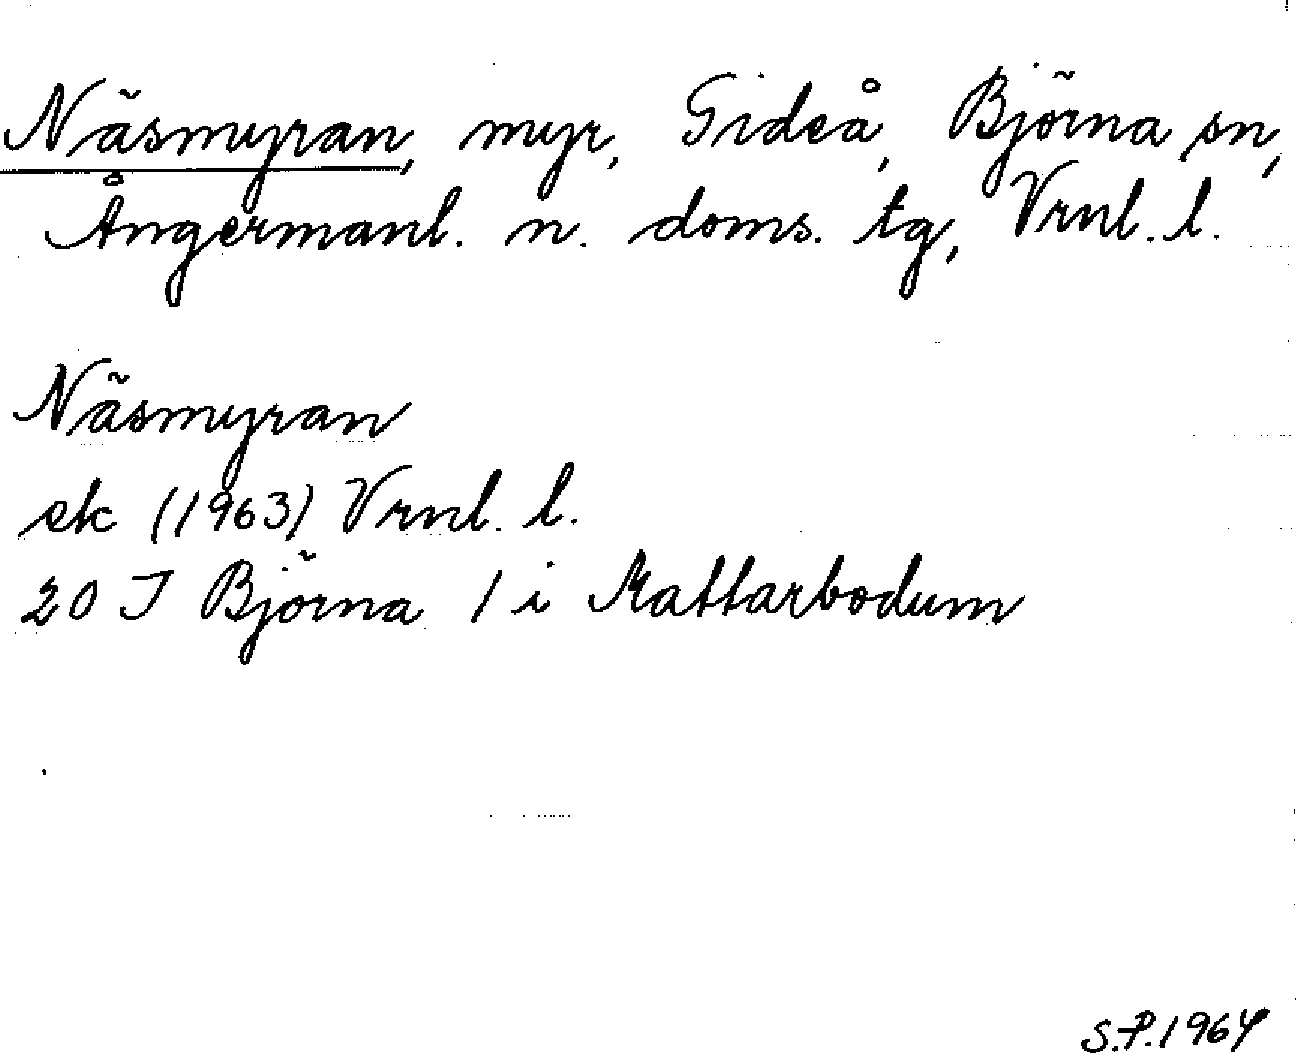 Näsmyran, myr, Gideå, Björna sn,
Ångermanl. n. doms. tg, Vrnl. l.
Näsmyran
ek (1963) Vrnl. l.
20 J Björna 1 i Mattarbodum
S.P. 1964